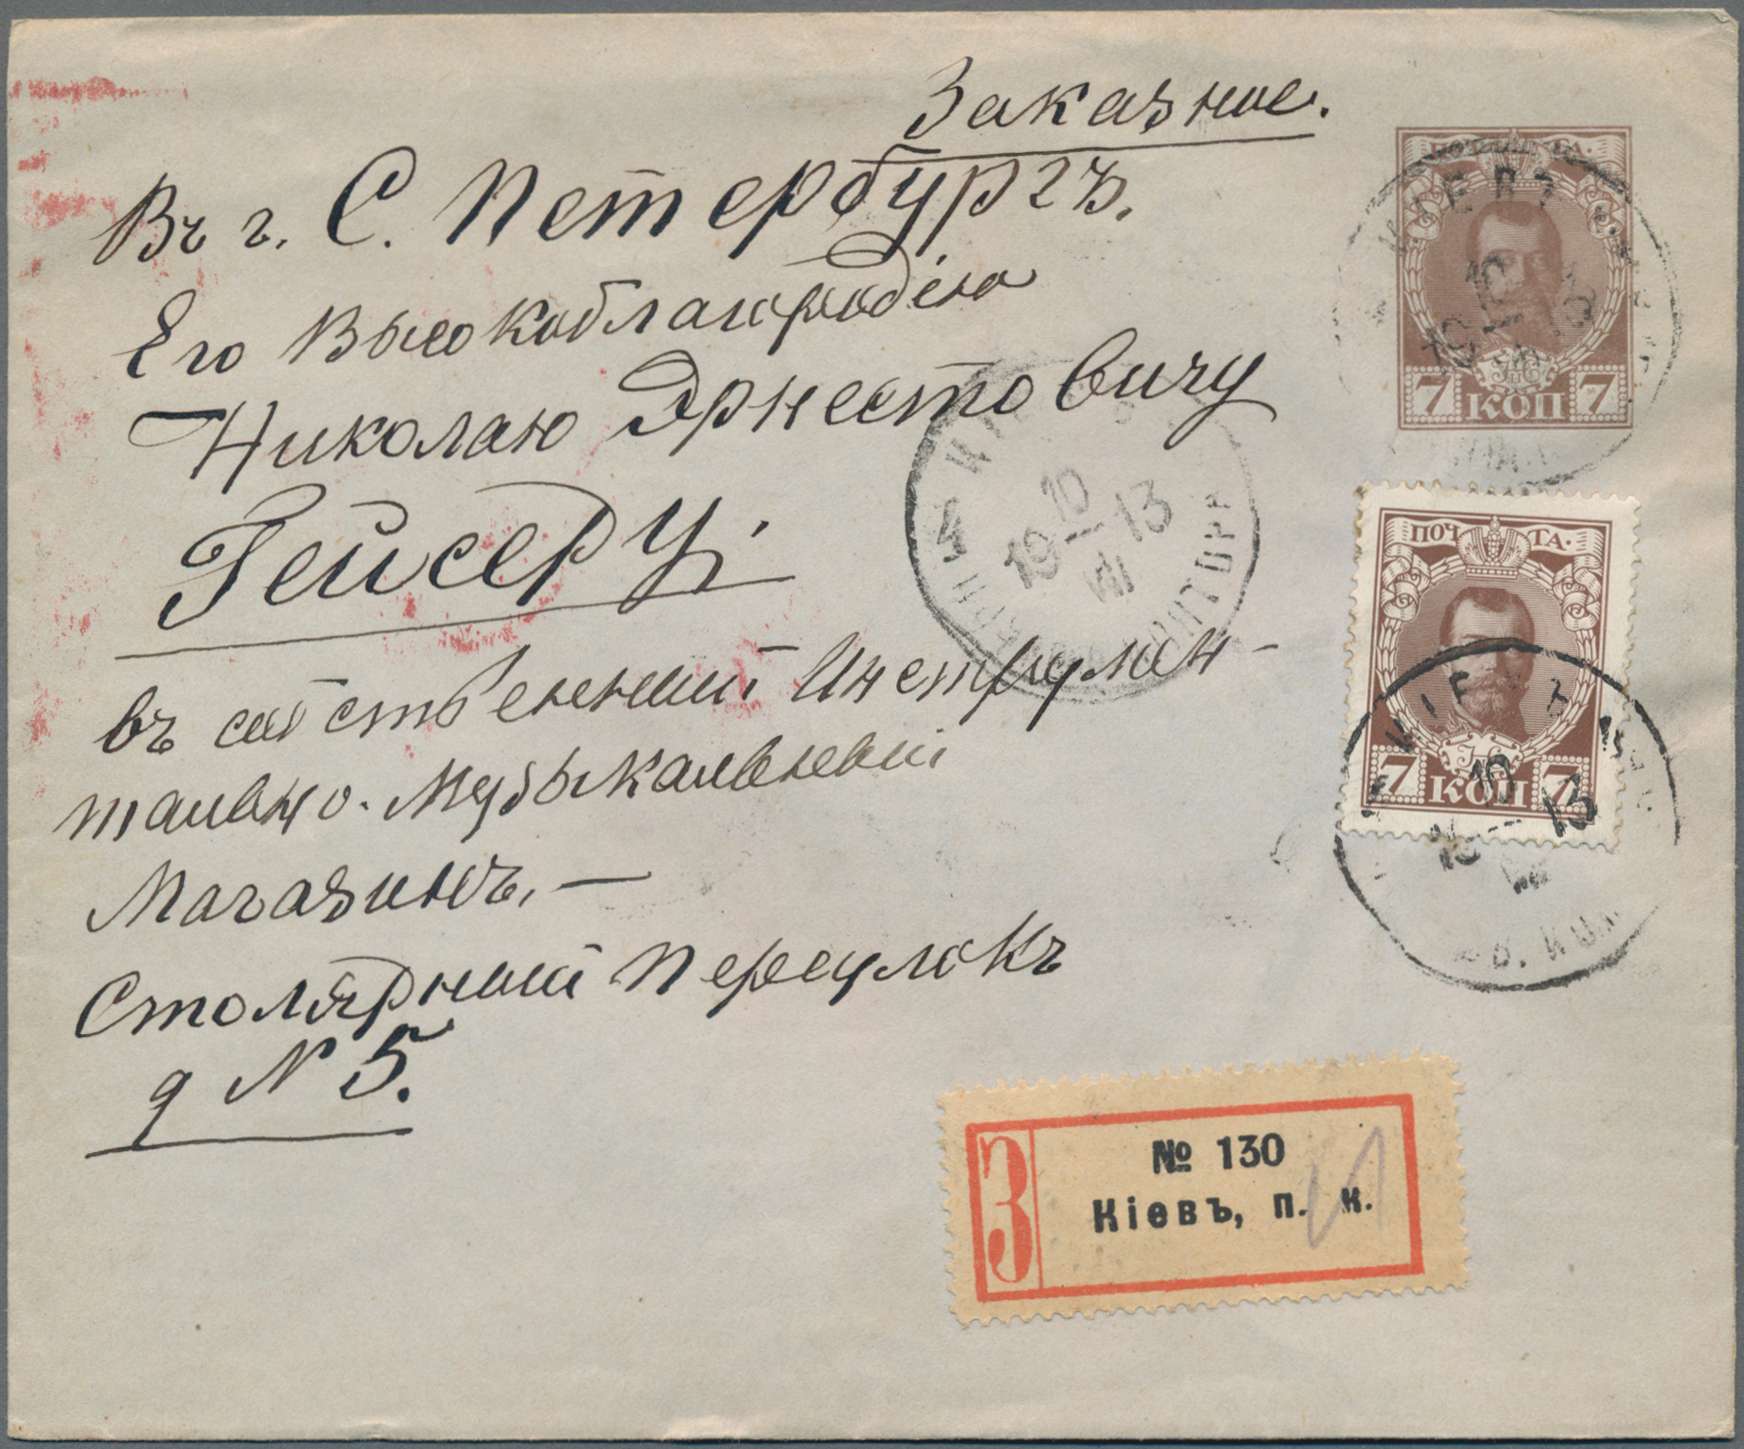 Заказное.
Въ г. С. Петербургъ.
Его Высокоблагородію
Николаю Эрнестовичу
Гейсеру.
въ собственный Инструмен-
тально-Музыкальный
Магазинъ. —
Столярный переулокъ
д N 5.
ПОЧТА.
7 КОП 7
ПОЧТА.
7 КОП 7
КІЕВЪ
10
19 — 13
VII
10
19 — 13
VII
КІЕВЪ
10
19 — 13
З
№ 130
Кіевъ, п. к.